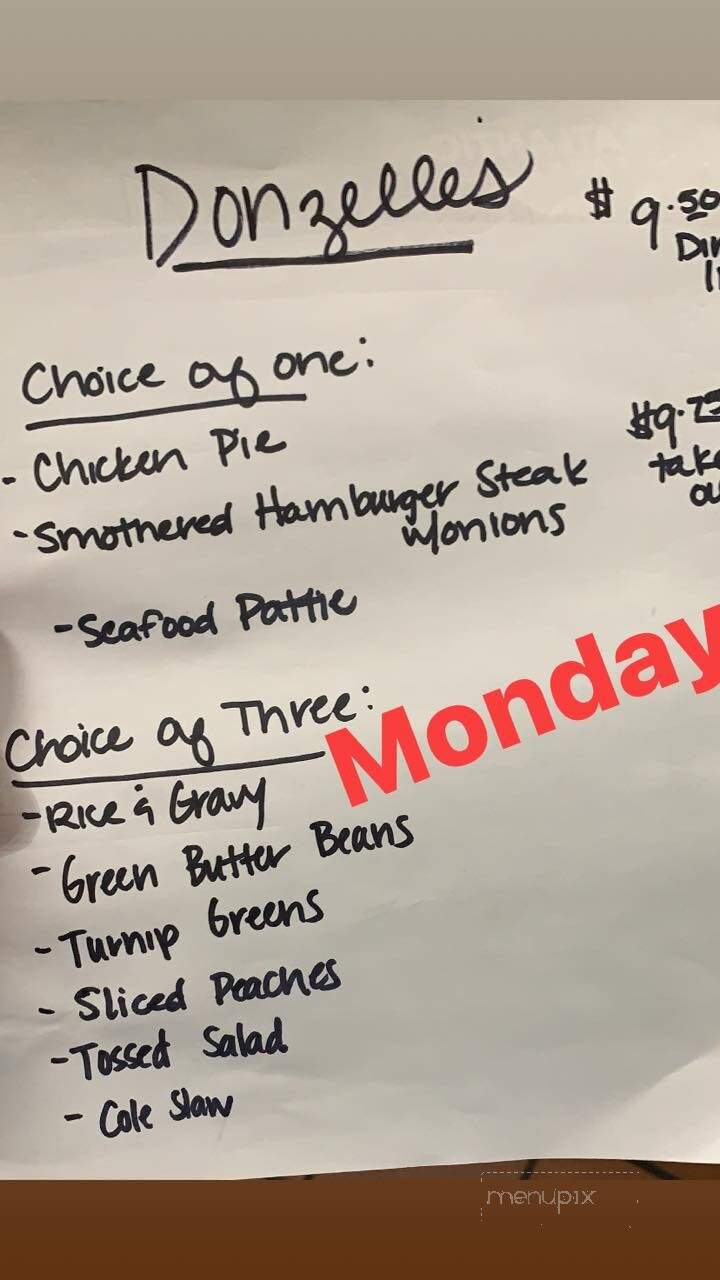 Donzelles
$ 9.50
Choice of one:
- Chicken Pie
- Smothered Hamburger Steak
w/onions
- Seafood Pattie
Monday
Choice of Three:
- Rice & Gravy
- Green Butter Beans
- Turnip Greens
- Sliced Peaches
- Tossed Salad
- Cole Slaw
menupix